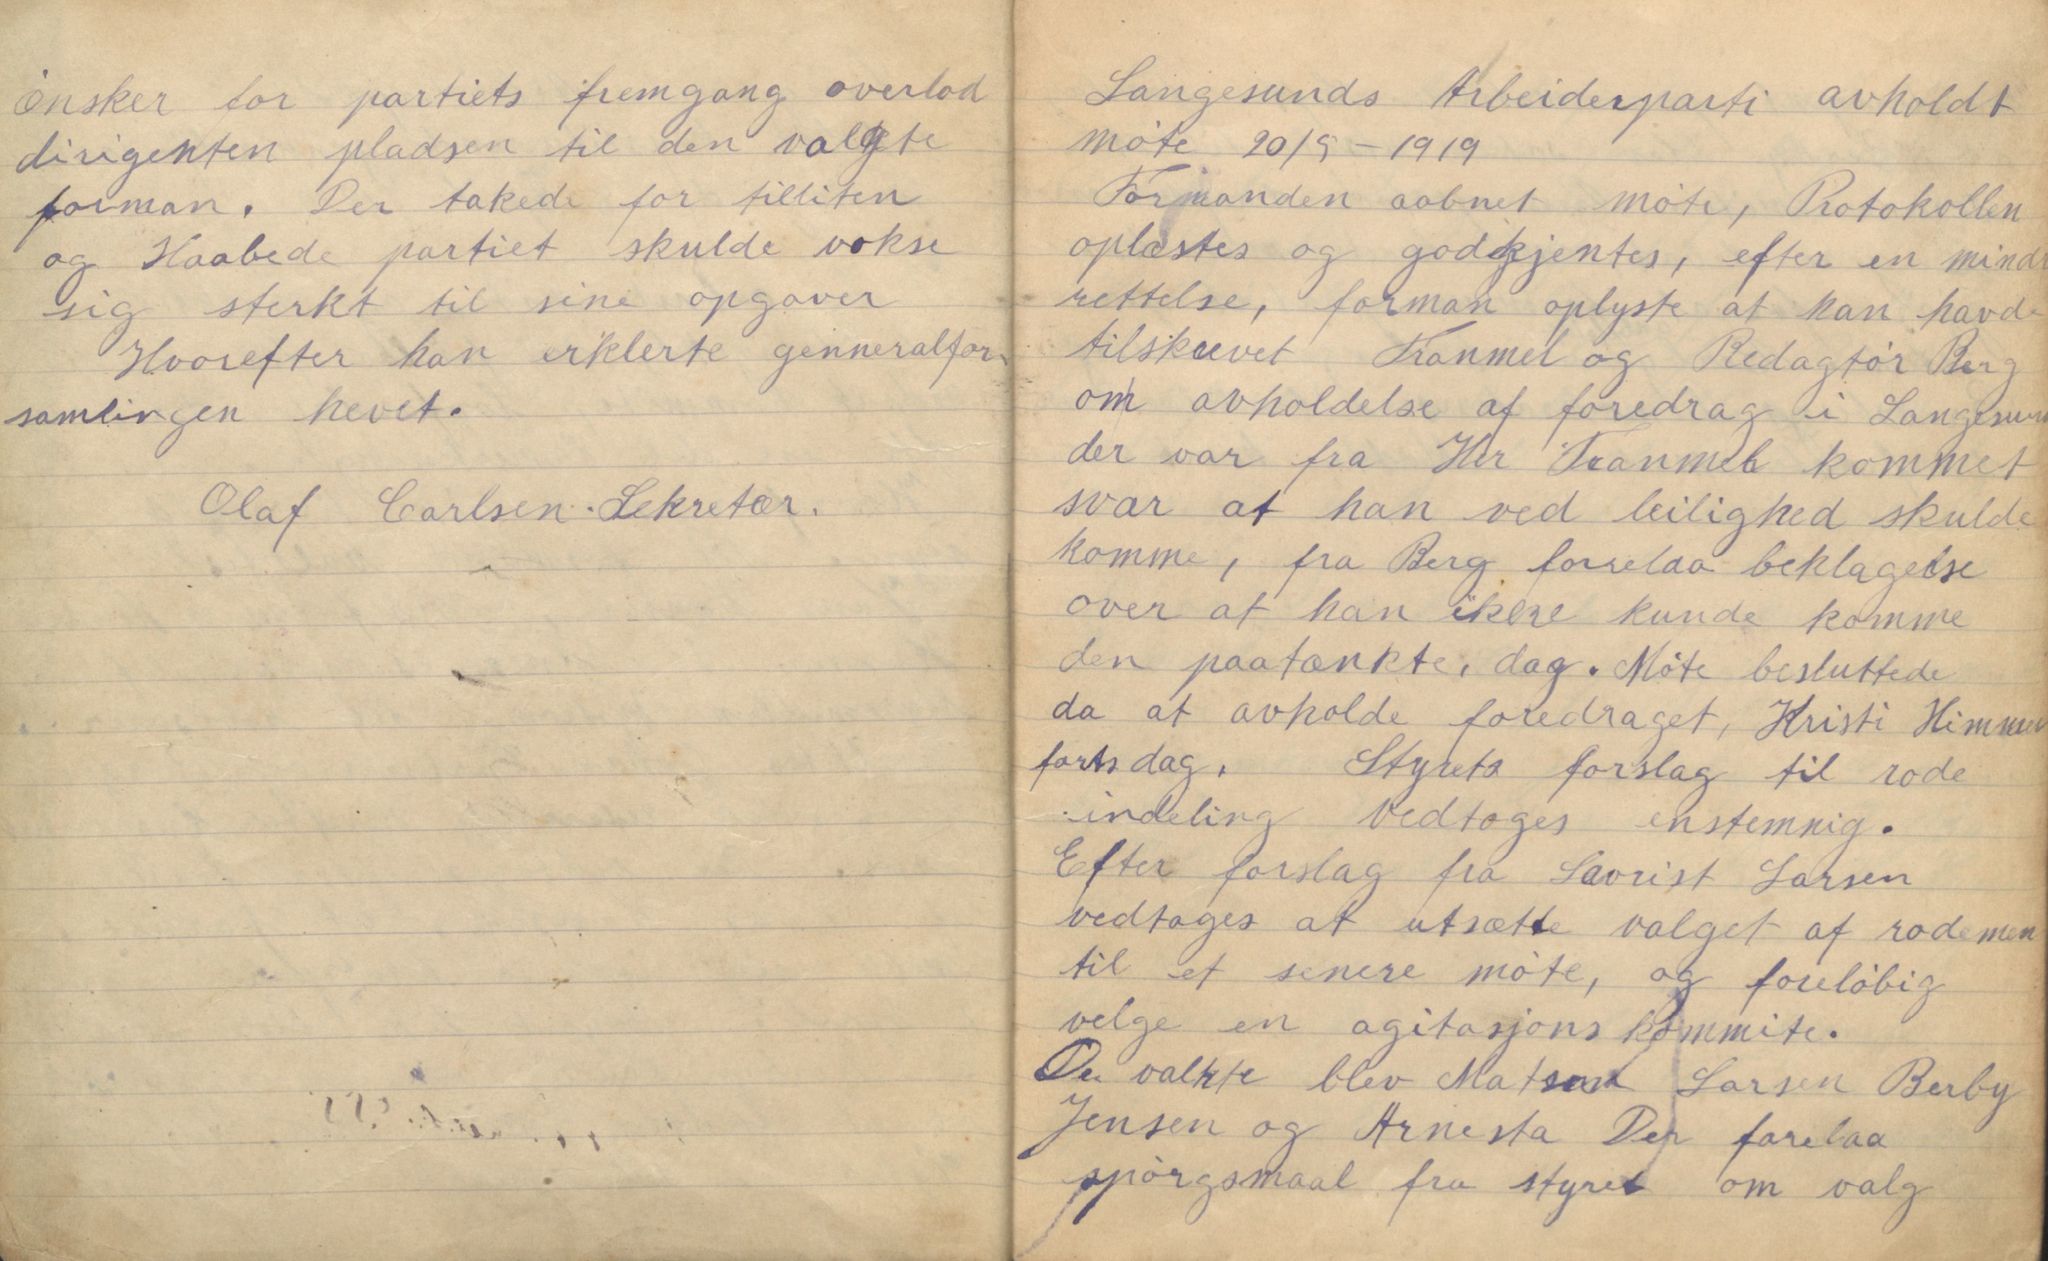 ønsker for partiets fremgang overlod
dirigenten pladsen til den valgte
forman. Der takede for tilliten
og Haabede partiet skulde vokse
sig sterkt til sine opgaver
Hvorefter han erklerte genneralfor-
samlingen hevet.
Olaf Carlsen. Sekretær.
Langesunds Arbeiderparti avholdt
møte 20/5 - 1919
Formanden aabnet møte, Protokollen
oplæstes og godkjentes, efter en mindr
rettelse, forman oplyste at han havde
tilskrevet Tranmel og Redagtør Berg
om avholdelse af foredrag i Langesun
der var fra Her Tranmel kommet
svar at han ved leilighed skulde
komme, fra Berg forelaa beklagelse
over at han ikke kunde komme
den paatænkte, dag. Møte besluttede
da at avholde foredraget, Kristi Himmel
fartsdag. Styrets forslag til rode
indeling vedtoges enstemnig.
Efter forslag fra Lavrist Larsen
vedtoges at utsætte valget af rodemen
til et senere møte, og foreløbig
velge en agitasjons kommite.
De valkte blev Matson Larsen Berby
Jensen og Arnesta Der forelaa
spørgsmaal fra styret om valg